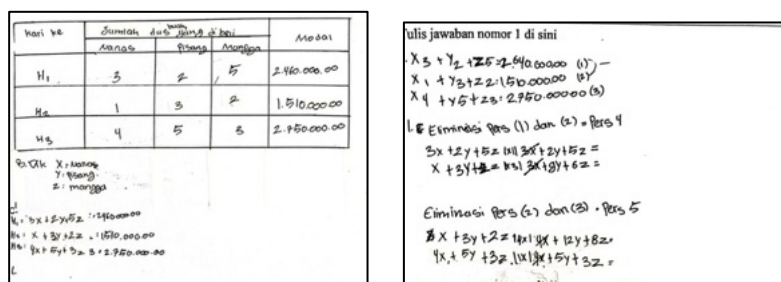 Hari ke
Jumlah dus buah yang dibeli
Modal
Nanas
Pisang
Mangga
H1 3 2 5 2.460.000.00
H2 1 3 2 1.510.000.00
H3 4 5 3 2.750.000.00
X: Nanas
Y: Pisang
Z: mangga
3x + 2y + 5z
x + 3y + 2z : 1510.000.00
4x + 5y + 3z
ulis jawaban nomor 1 di sini
X3 + Y2 + Z5 (1)
X1 + Y3 + Z2: 1510.000.00 (2)
X4 + Y5 + Z3: 2.750.000.00 (3)
1. Eliminasi Pers (1) dan (2) = Pers 4
3x + 2y + 5z |x1| 3x + 2y + 5z =
x + 3y + 2z |x3| 3x + 9y + 6z =
Eliminasi Pers (2) dan (3) = Pers 5
x + 3y + 2z |4x| 4x + 12y + 8z =
4x + 5y + 3z |1x| 4x + 5y + 3z =